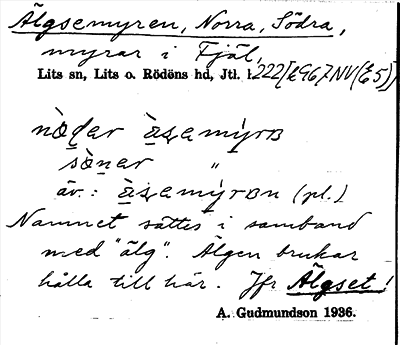 Älgsemyren, Norra, Södra,
myrar i Fjäl,
Lits sn, Lits o. Rödöns hd, Jtl.
nòḍer àsemyrʙ
sǜner "
äv.: àsemyrʙn (pl.)
Namnet sättes i samband
med "älg". Älgen brukar
hålla till här. Jfr Älgset!
A. Gudmundson 1936.